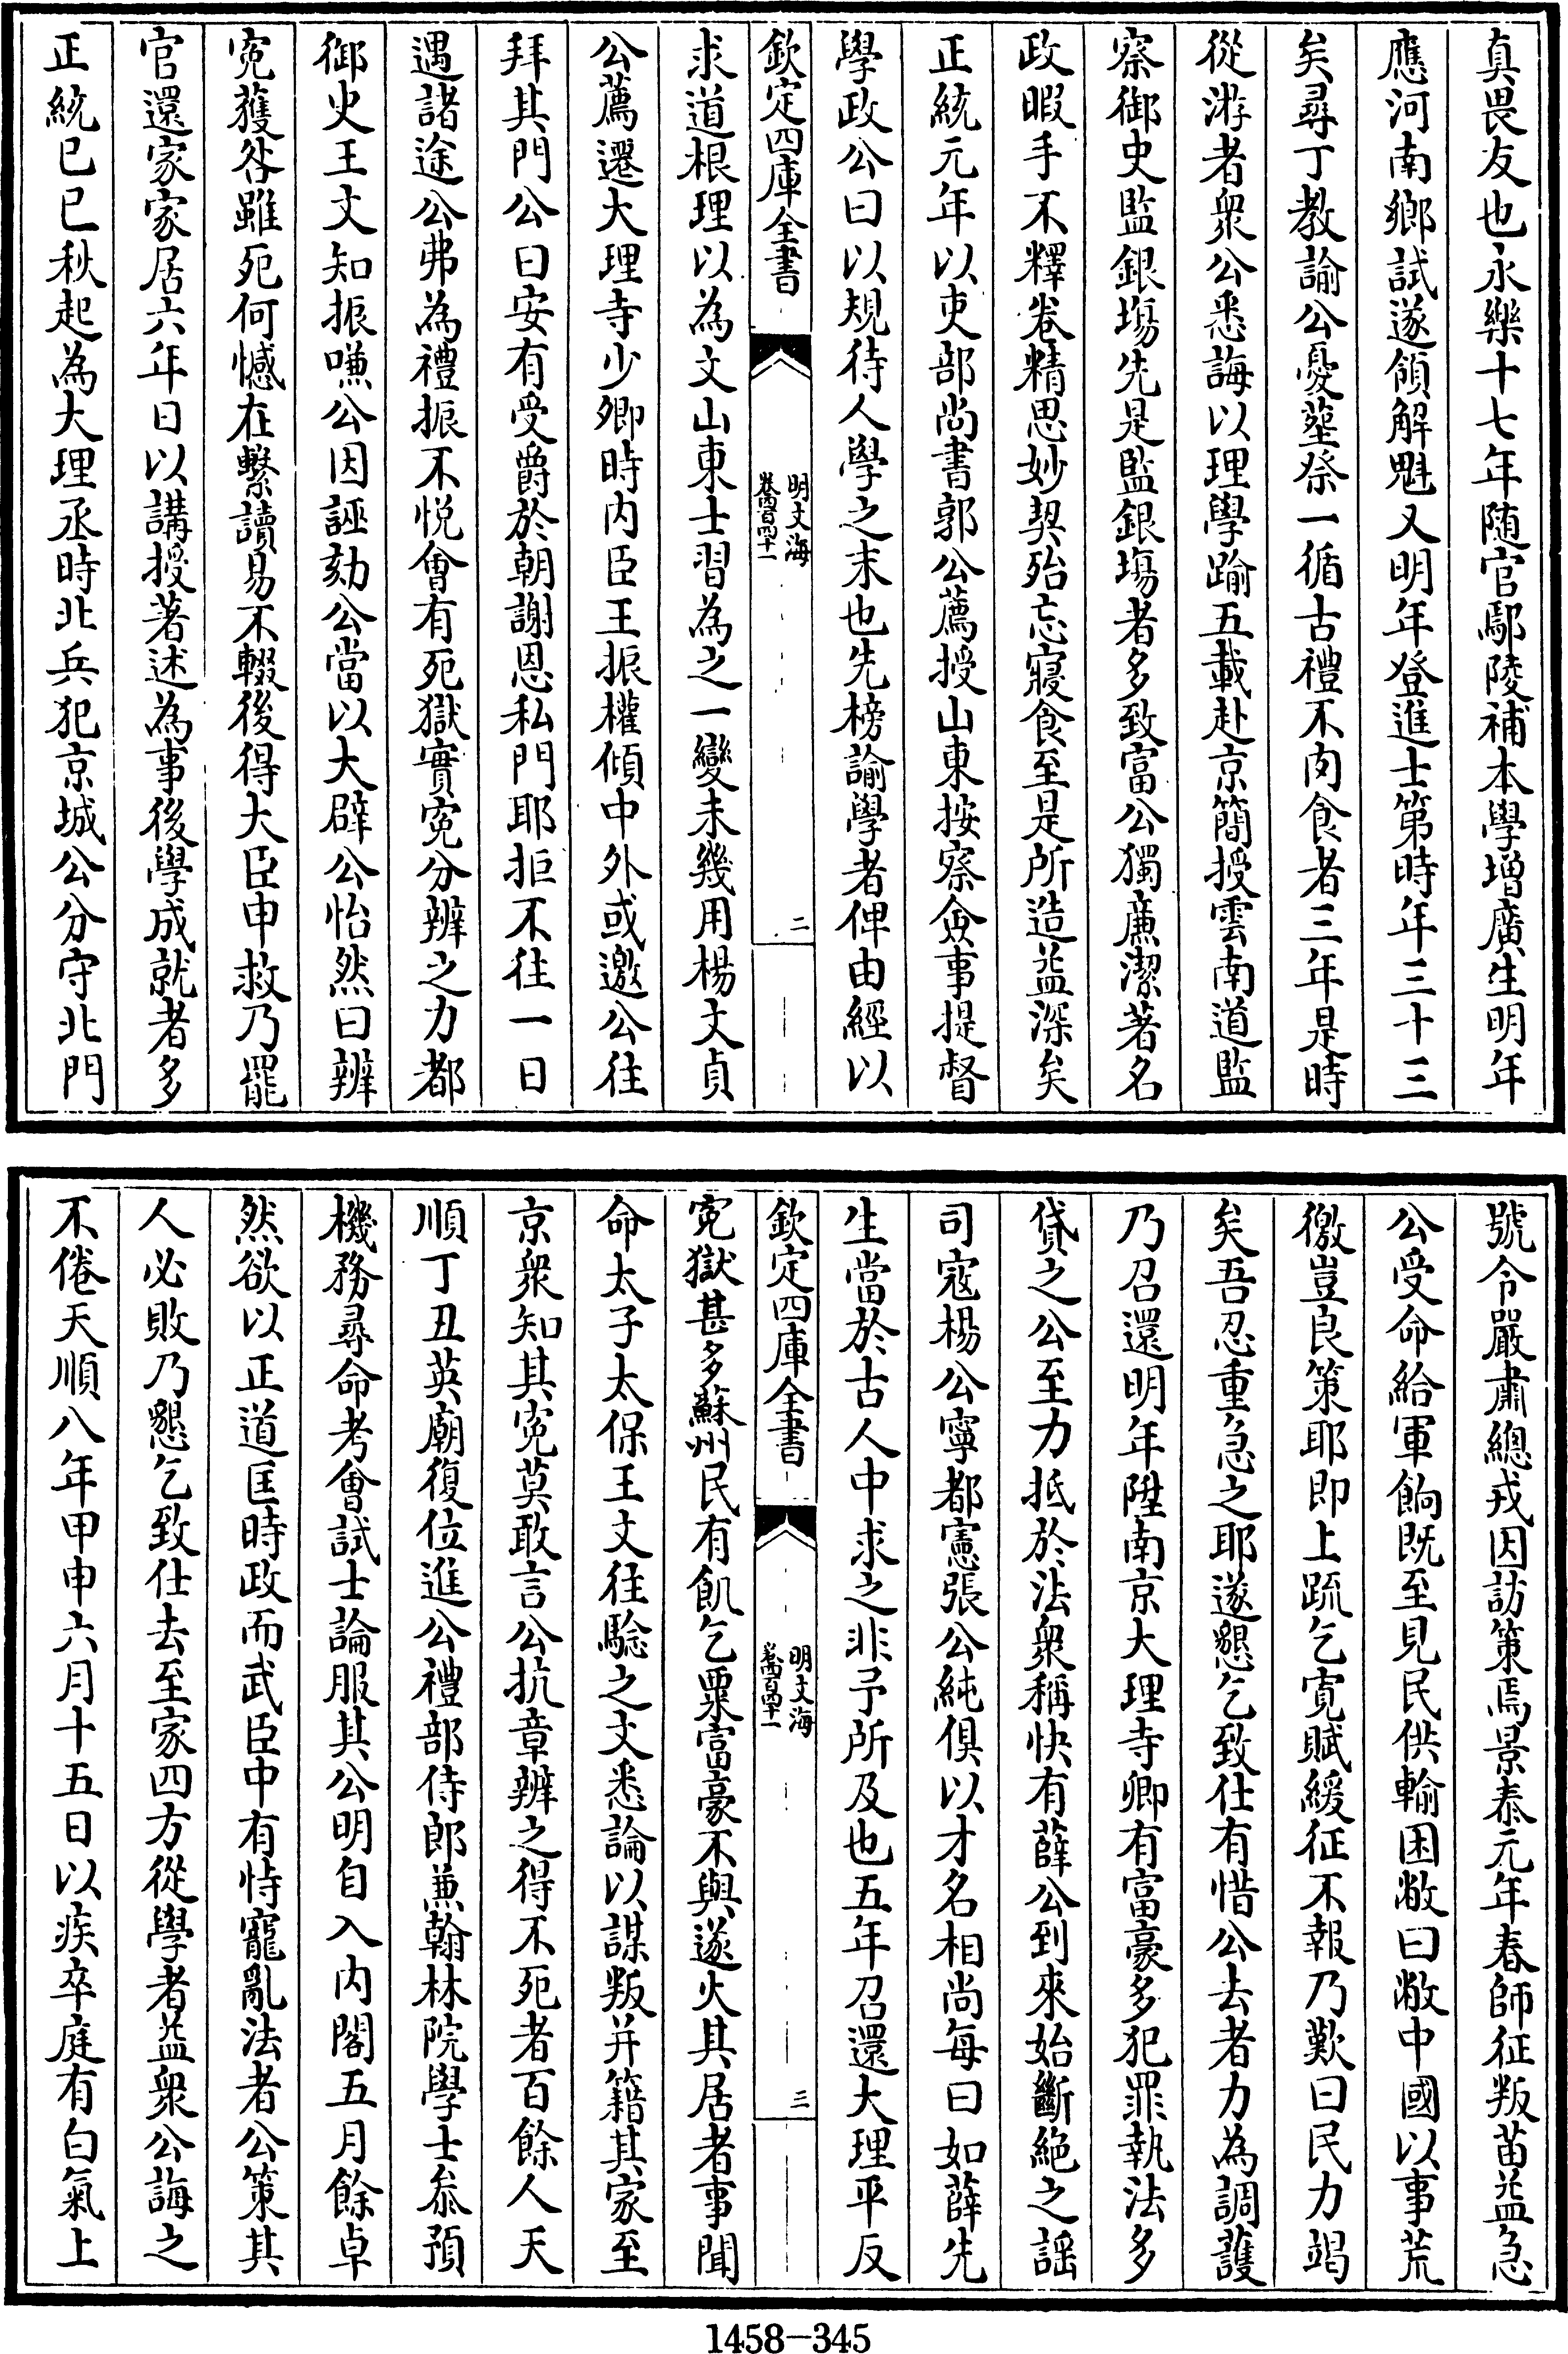 真畏友也永樂十七年随官鄢陵補本學增廣生明年
應河南鄉試遂領解魁又明年登進士第時年三十三
矣尋丁教諭公憂塟祭一循古禮不肉食者三年是時
從游者衆公悉誨以理學踰五載赴京簡授雲南道監
察御史監銀塲先是監銀塲者多致富公獨廉潔著名
政暇手不釋卷精思妙契殆忘寢食至是所造益深矣
正統元年以吏部尚書郭公薦授山東按察僉事提督
學政公曰以規待人學之末也先榜諭學者俾由經以
欽定四庫全書
明文海
卷四百四十一
二
求道根理以為文山東士習為之一變未幾用楊文貞
公薦遷大理寺少卿時内臣王振權傾中外或邀公往
拜其門公曰安有受爵於朝謝恩私門耶拒不往一日
遇諸途公弗為禮振不悦會有死獄實寃分辨之力都
御史王文知振嗛公因誣劾公當以大辟公怡然曰辨
寃獲咎雖死何憾在繫讀易不輟後得大臣申救乃罷
官還家家居六年日以講授著述為事後學成就者多
正統已巳秋起為大理丞時北兵犯京城公分守北門
號令嚴肅總戎因訪策焉景泰元年春師征叛苗益急
公受命給軍餉既至見民供輸困敝曰敝中國以事荒
徼豈良策耶即上疏乞寛賦緩征不報乃歎曰民力竭
矣吾忍重急之耶遂懇乞致仕有惜公去者力為調護
乃召還明年陞南京大理寺卿有富豪多犯罪執法多
貸之公至力抵於法衆稱快有薛公到來始斷絶之謡
司寇楊公寧都憲張公純俱以才名相尚每曰如薛先
生當於古人中求之非予所及也五年召還大理平反
欽定四庫全書
明文海
卷四百四十一
三
寃獄甚多蘇州民有飢乞粟富豪不與遂火其居者事聞
命太子太保王文往驗之文悉論以謀叛并籍其家至
京衆知其寃莫敢言公抗章辨之得不死者百餘人天
順丁丑英廟復位進公禮部侍郎兼翰林院學士叅預
機務尋命考會試士論服其公明自入内閣五月餘卓
然欲以正道匡時政而武臣中有恃寵亂法者公策其
人必敗乃懇乞致仕去至家四方從學者益衆公誨之
不倦天順八年甲申六月十五日以疾卒庭有白氣上
1458-345